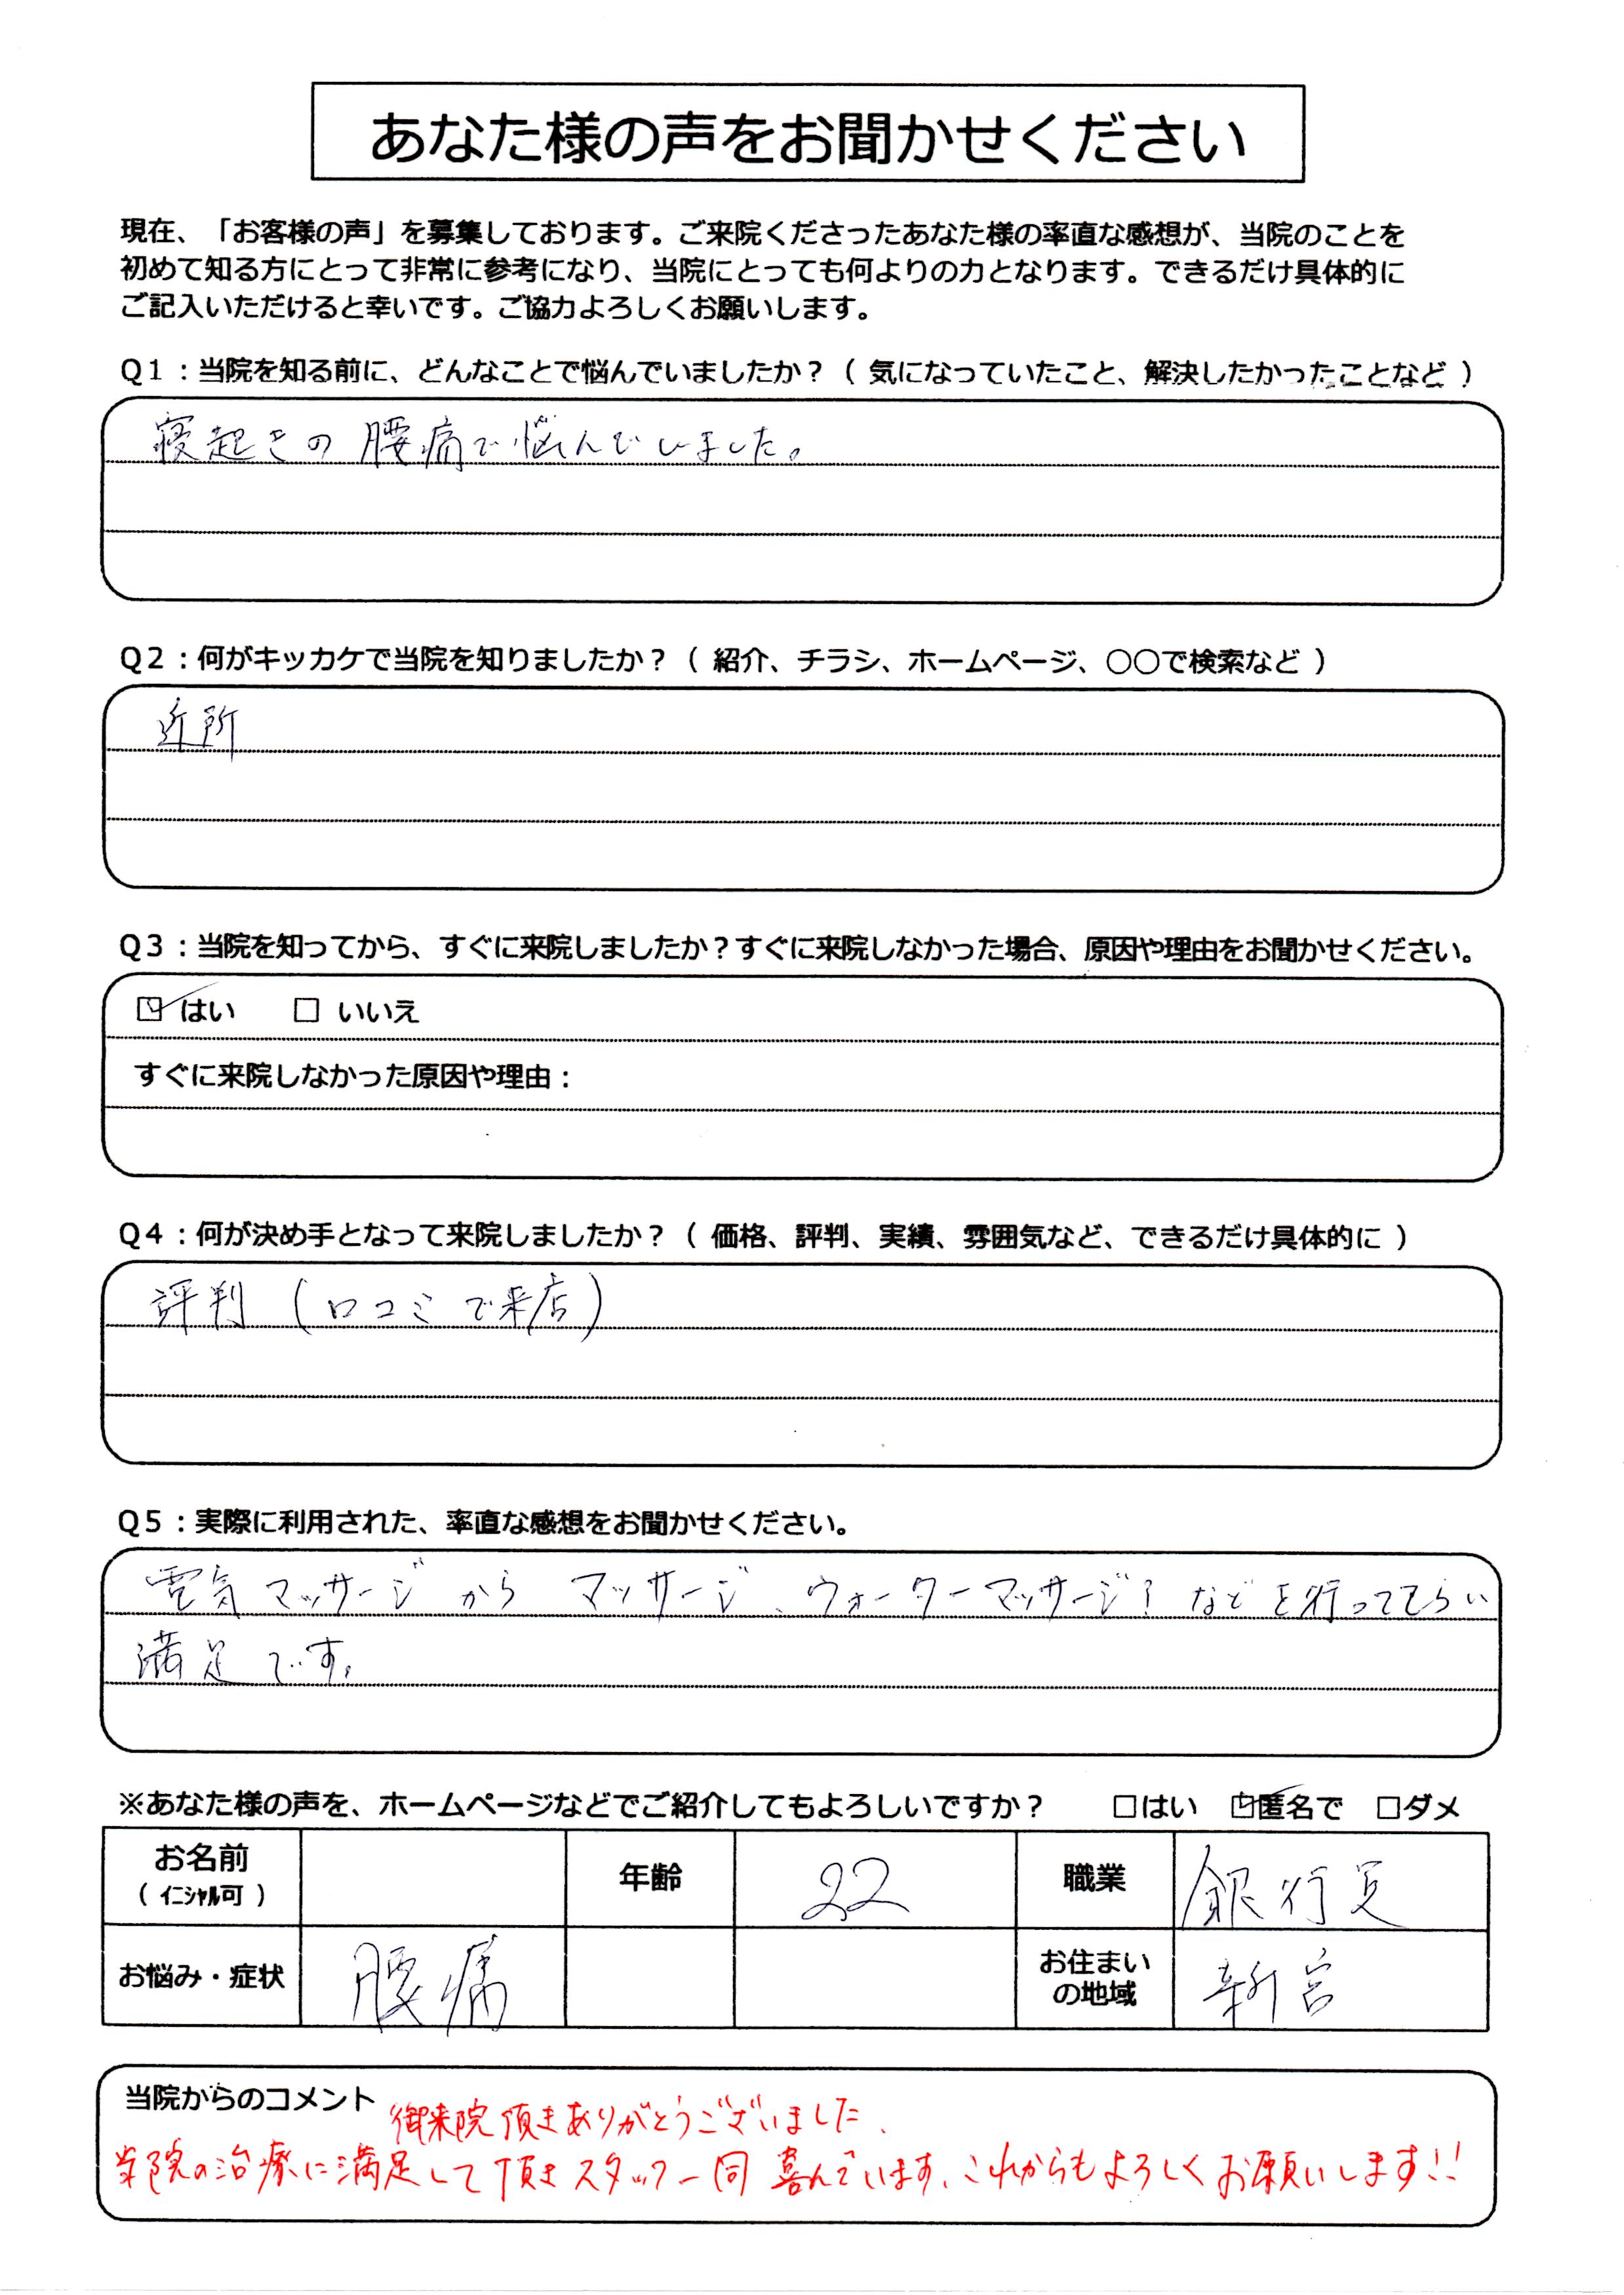 あなた様の声をお聞かせください
現在、「お客様の声」を募集しております。ご来院くださったあなた様の率直な感想が、当院のことを
初めて知る方にとって非常に参考になり、当院にとっても何よりの力となります。できるだけ具体的に
ご記入いただけると幸いです。ご協力よろしくお願いします。
Q1：当院を知る前に、どんなことで悩んでいましたか？（ 気になっていたこと、解決したかったことなど ）
寝起きの腰痛で悩んでいました。
Q2：何がキッカケで当院を知りましたか？（ 紹介、チラシ、ホームページ、○○で検索など ）
近所
Q3：当院を知ってから、すぐに来院しましたか？すぐに来院しなかった場合、原因や理由をお聞かせください。
☑ はい □ いいえ
すぐに来院しなかった原因や理由：
Q4：何が決め手となって来院しましたか？（ 価格、評判、実績、雰囲気など、できるだけ具体的に ）
評判（口コミで来店）
Q5：実際に利用された、率直な感想をお聞かせください。
電気マッサージから マッサージ、ウォーターマッサージ！などを行ってもらい
満足です。
※あなた様の声を、ホームページなどでご紹介してもよろしいですか？ □はい ☑匿名で □ダメ
お名前 年齢 22 職業 銀行員
（ イニシャル可 ）
お悩み・症状 腰痛 お住まいの地域 新宮
当院からのコメント 御来院頂きありがとうございました、
当院の治療に満足して頂きスタッフ一同 喜んでいます、これからもよろしくお願いします!!